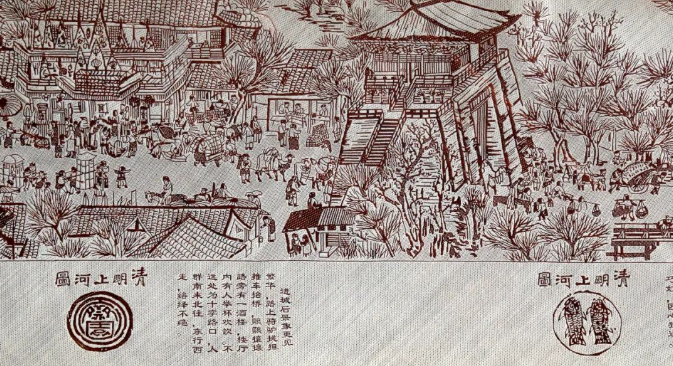 清明上河圖
进城后景象更见
繁华,路上骑驴挑担
推车抬轿,熙熙攘攘
路旁有一酒楼,楼厅
内有人举杯欢饮,不
远处为十字路口,人
群南来北往,东行西
走,络绎不绝。
清明上河圖